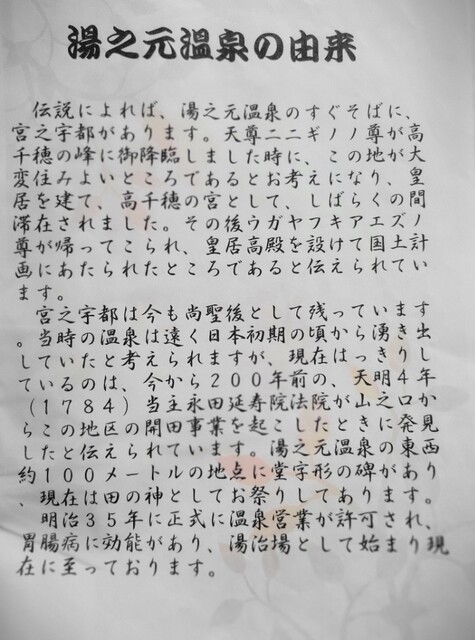 湯之元温泉の由来
伝説によれば、湯之元温泉のすぐそばに、
宮之宇都があります。天尊ニニギノノ尊が高
千穂の峰に御降臨しました時に、この地が大
変住みよいところであるとお考えになり、皇
居を建て、高千穂の宮として、しばらくの間
滞在されました。その後ウガヤフキアエズノ
尊が帰ってこられ、皇居高殿を設けて国土計
画にあたられたところであると伝えられてい
ます。
宮之宇都は今も尚聖後として残っています
。当時の温泉は遠く日本初期の頃から湧き出
していたと考えられますが、現在はっきりし
ているのは、今から２００年前の、天明４年
（１７８４）当主永田延寿院法院が山之口か
らこの地区の開田事業を起こしたときに発見
したと伝えられています。湯之元温泉の東西
約１００メートルの地点に堂字形の碑があり
、現在は田の神としてお祭りしてあります。
明治３５年に正式に温泉営業が許可され、
胃腸病に効能があり、湯治場として始まり現
在に至っております。